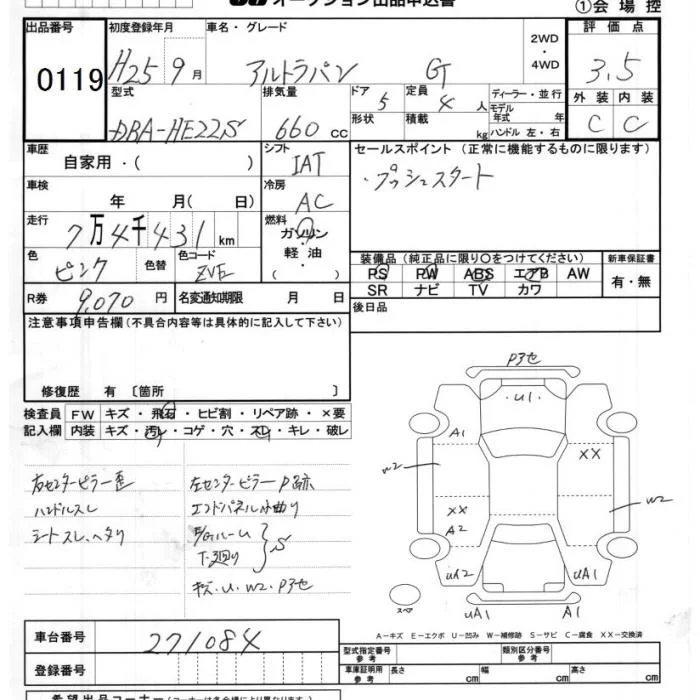 オークション出品申込書
①会場控
出品番号 初度登録年月 車名・グレード 2WD・4WD 評価点
0119 H25 9月 アルトラパン GT 3.5
型式 排気量 ドア 定員 ディーラー・並行 外装 内装
DBA-HE22S 660cc 5 4人 モデル年式 年 C C
形状 積載 kg ハンドル 左・右
車歴 シフト セールスポイント (正常に機能するものに限ります)
自家用・( ) IAT ・プッシュスタート
車検 冷房
年 月( 日) AC
走行 燃料
7万4千431km ガソリン
軽油
・( )
色 色替 色コード 装備品 (純正品に限り○をつけてください) 新車保証書
ピンク ZVE PS PW ABS エアB AW 有・無
SR ナビ TV カワ
R券 9,070円 名変通知期限 月 日 後日品
注意事項申告欄 (不具合内容等は具体的に記入して下さい)
修復歴 有 〔箇所 〕
検査員 FW キズ・飛石・ヒビ割・リペア跡・×要
記入欄 内装 キズ・汚レ・コゲ・穴・スレ・キレ・破レ
右センターピラー歪 左センターピラーP跡
ハンドルスレ エンドパネル小曲り
シートスレ、ヘタリ
下廻り S
キズ・U・W2・P3セ
P3セ
・U1・
A1
XX
W2
W2
XX
A2
UA2
UA1
スペア
UA1
A1
A-キズ E-エクボ U-凹み W-補修跡 S-サビ C-腐食 XX-交換済
車台番号 271084
登録番号
型式指定番号 参考 類別区分番号 参考
車庫証明用 参考 長さ cm 幅 cm 高さ cm
希望出品コーナー (コーナーは各会場により異なります)